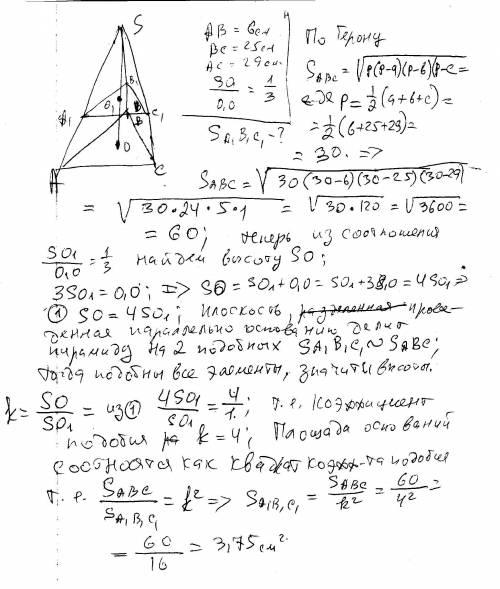 S
AB = 6см
BC = 25см
AC = 29см
SO₁/O₁O = 1/3
S_A₁B₁C₁ - ?
По Герону
S_ABC = √p(p-a)(p-b)(p-c) =
где p = ½(a+b+c) =
= ½(6+25+29) =
= 30. =>
B₁
A₁ O₁ B C₁
O
A C
S_ABC = √30(30-6)(30-25)(30-29)
= √30·24·5·1 = √30·120 = √3600 =
= 60; теперь из соотношения
SO₁/O₁O = 1/3 найдем высоту SO;
3SO₁ = O₁O; => SO = SO₁ + O₁O = SO₁ + 3SO₁ = 4SO₁ =>
① SO = 4SO₁; плоскость, разделенная прове-
денная параллельно основанию делит
пирамиду на 2 подобных SA₁B₁C₁ ~ SABC;
тогда подобны все элементы, значит и высоты.
k = SO/SO₁ = из ① 4SO₁/SO₁ = 4/1; т.е. коэффициент
подобия k = 4; Площади оснований
соотносятся как квадрат коэфф-та подобия
т.е. S_ABC/S_A₁B₁C₁ = k² => S_A₁B₁C₁ = S_ABC/k² = 60/4² =
= 60/16 = 3,75 см².